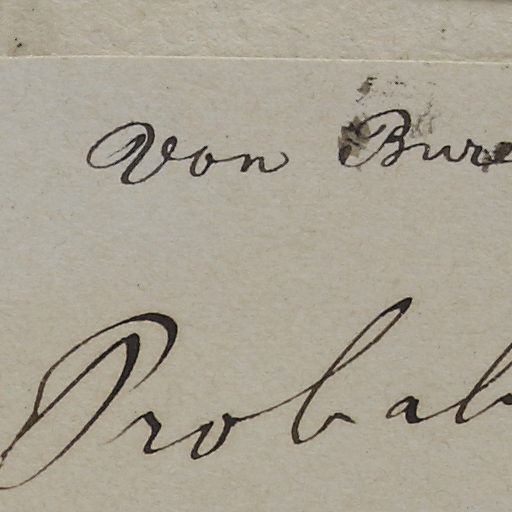 Von Bure
Probab